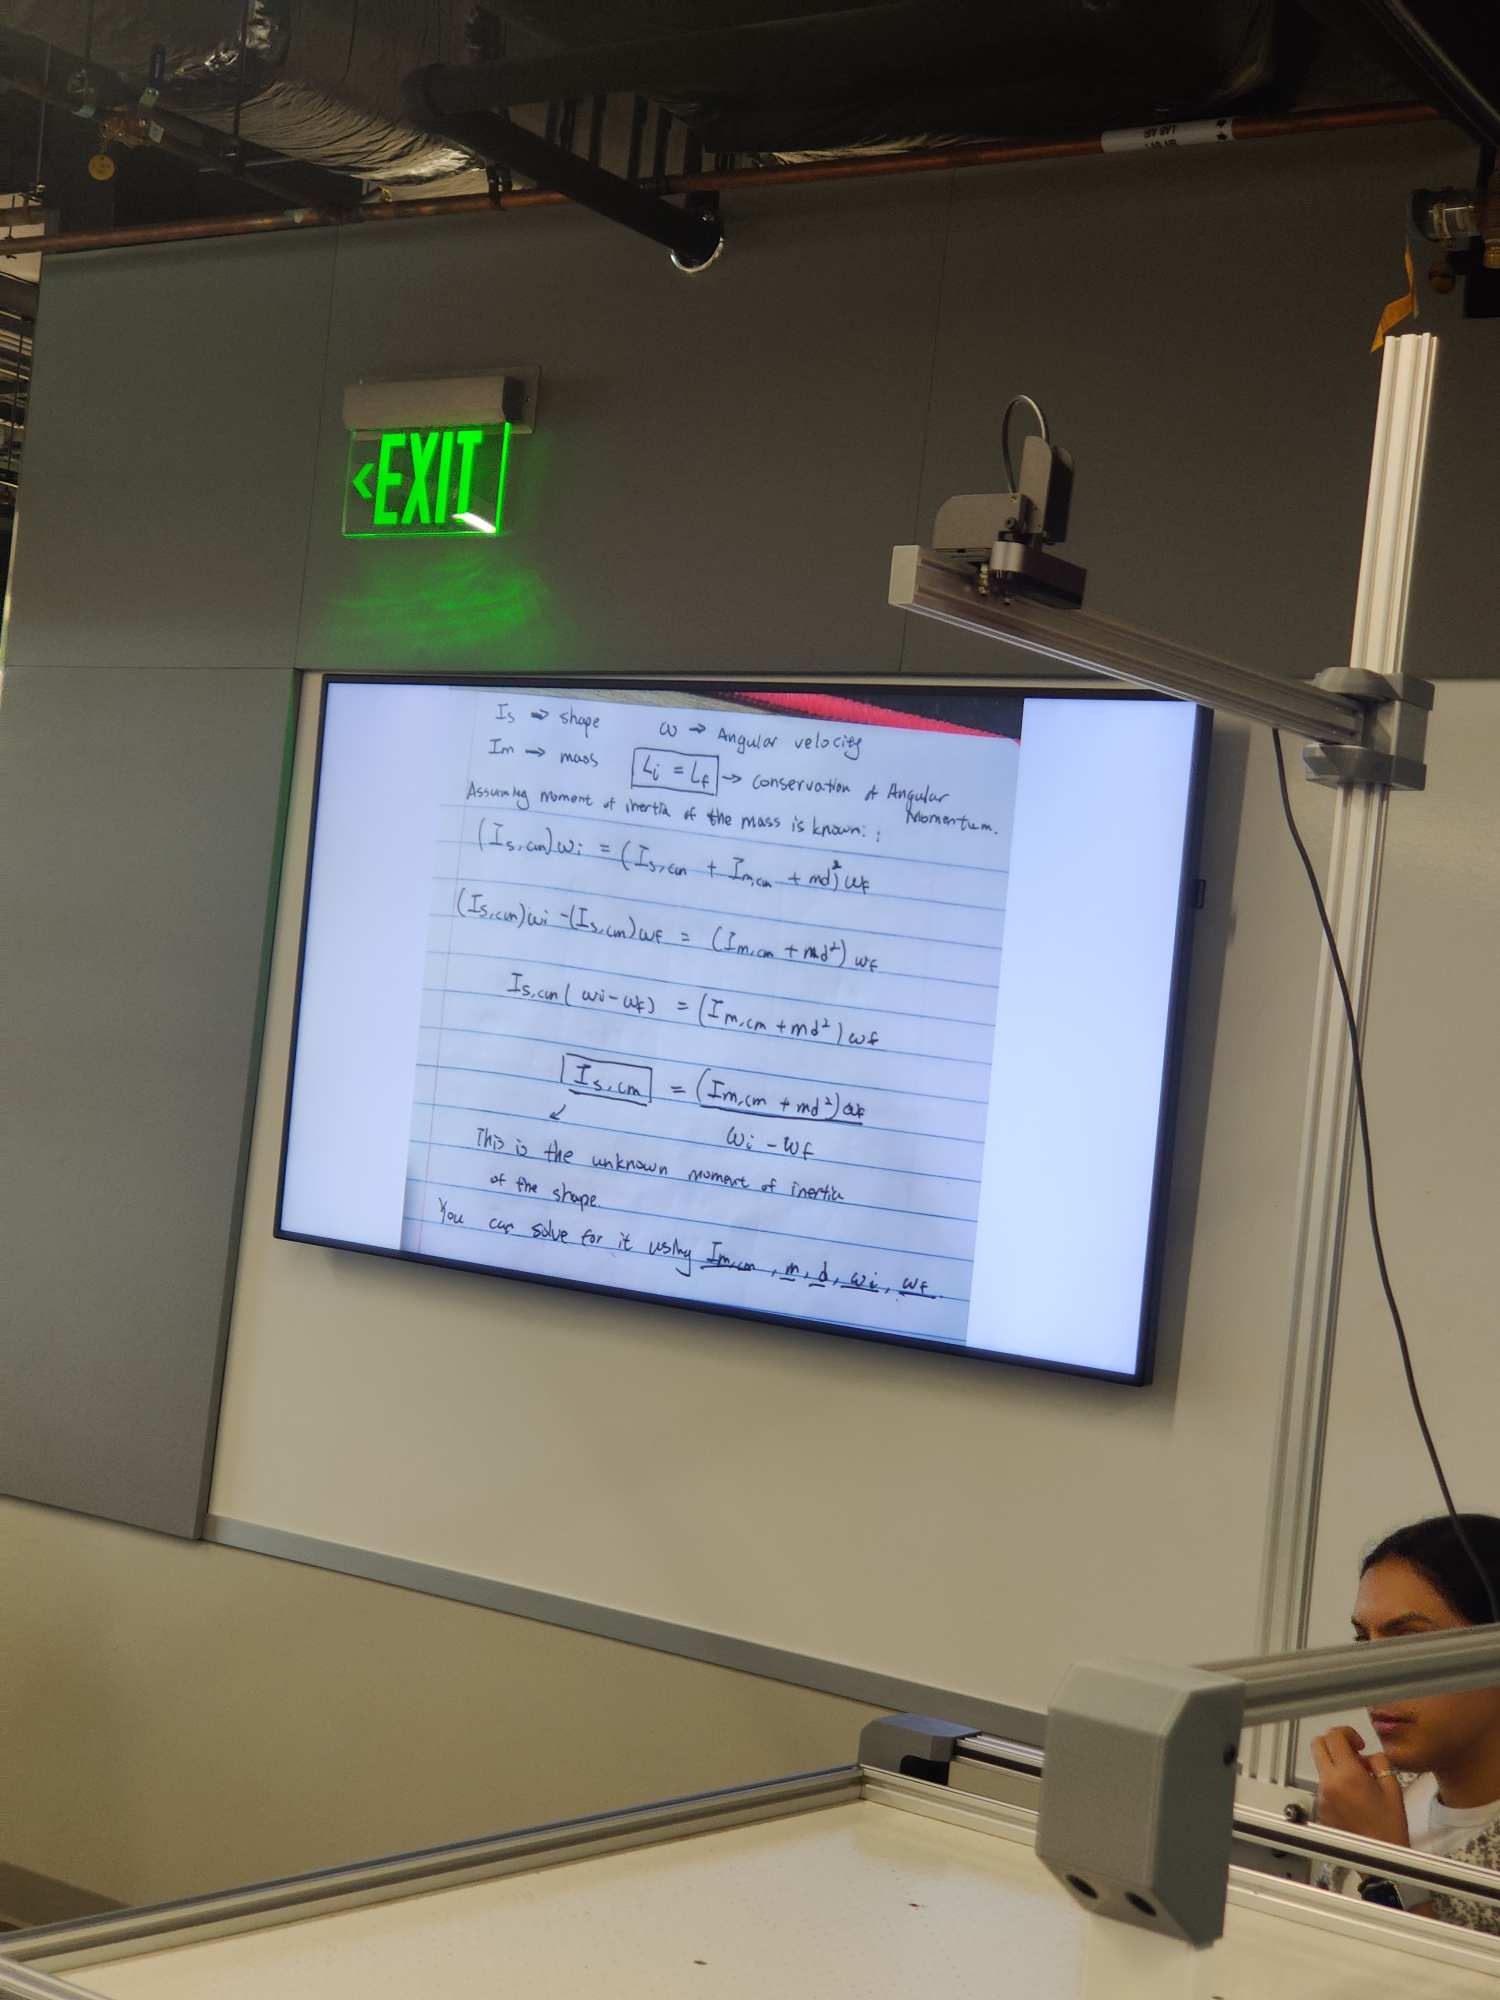 LAB AIR
LAB AIR
<EXIT
Is → shape
ω → Angular velocity
Im → mass
Li = Lf → conservation of Angular Momentum.
Assuming moment of inertia of the mass is known: :
(Is,cm)ωi = (Is,cm + Im,cm + md²)ωf
(Is,cm)ωi - (Is,cm)ωf = (Im,cm + md²) ωf
Is,cm( ωi - ωf) = (Im,cm + md²) ωf
Is,cm = (Im,cm + md²)ωf
ωi - ωf
This is the unknown moment of inertia
of the shape.
You can solve for it using Im,cm, m, d, ωi, ωf.